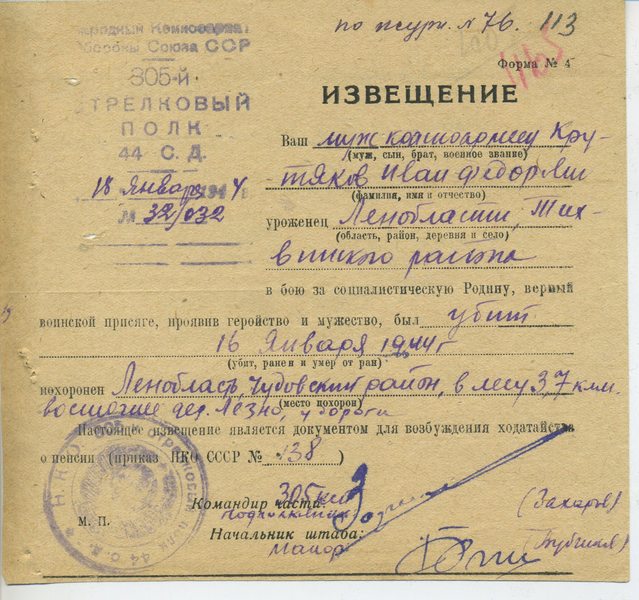 по журн. № 76. 113
Народный Комиссариат
Обороны Союза ССР
305-й
СТРЕЛКОВЫЙ
ПОЛК
44 С. Д.
18 Января 1944
№ 32/032
Форма № 4
ИЗВЕЩЕНИЕ
Ваш муж красноармеец Кру-
(муж, сын, брат, военное звание)
тяков Иван Федорович
(фамилия, имя и отчество)
уроженец Ленобласти, Тих-
(область, район, деревня и село)
винского района
в бою за социалистическую Родину, верный
воинской присяге, проявив геройство и мужество, был убит
16 Января 1944 г
(убит, ранен и умер от ран)
похоронен Ленобласть, Чудовский район, в лесу 3,7 клм.
(место похорон)
восточнее дер. Лезно, у дороги
Настоящее извещение является документом для возбуждения ходатайства
о пенсии (приказ НКО СССР № 138)
305 сп
Командир части:
подполковник
(Захаров)
М. П.
Начальник штаба:
майор
44 С. Д.